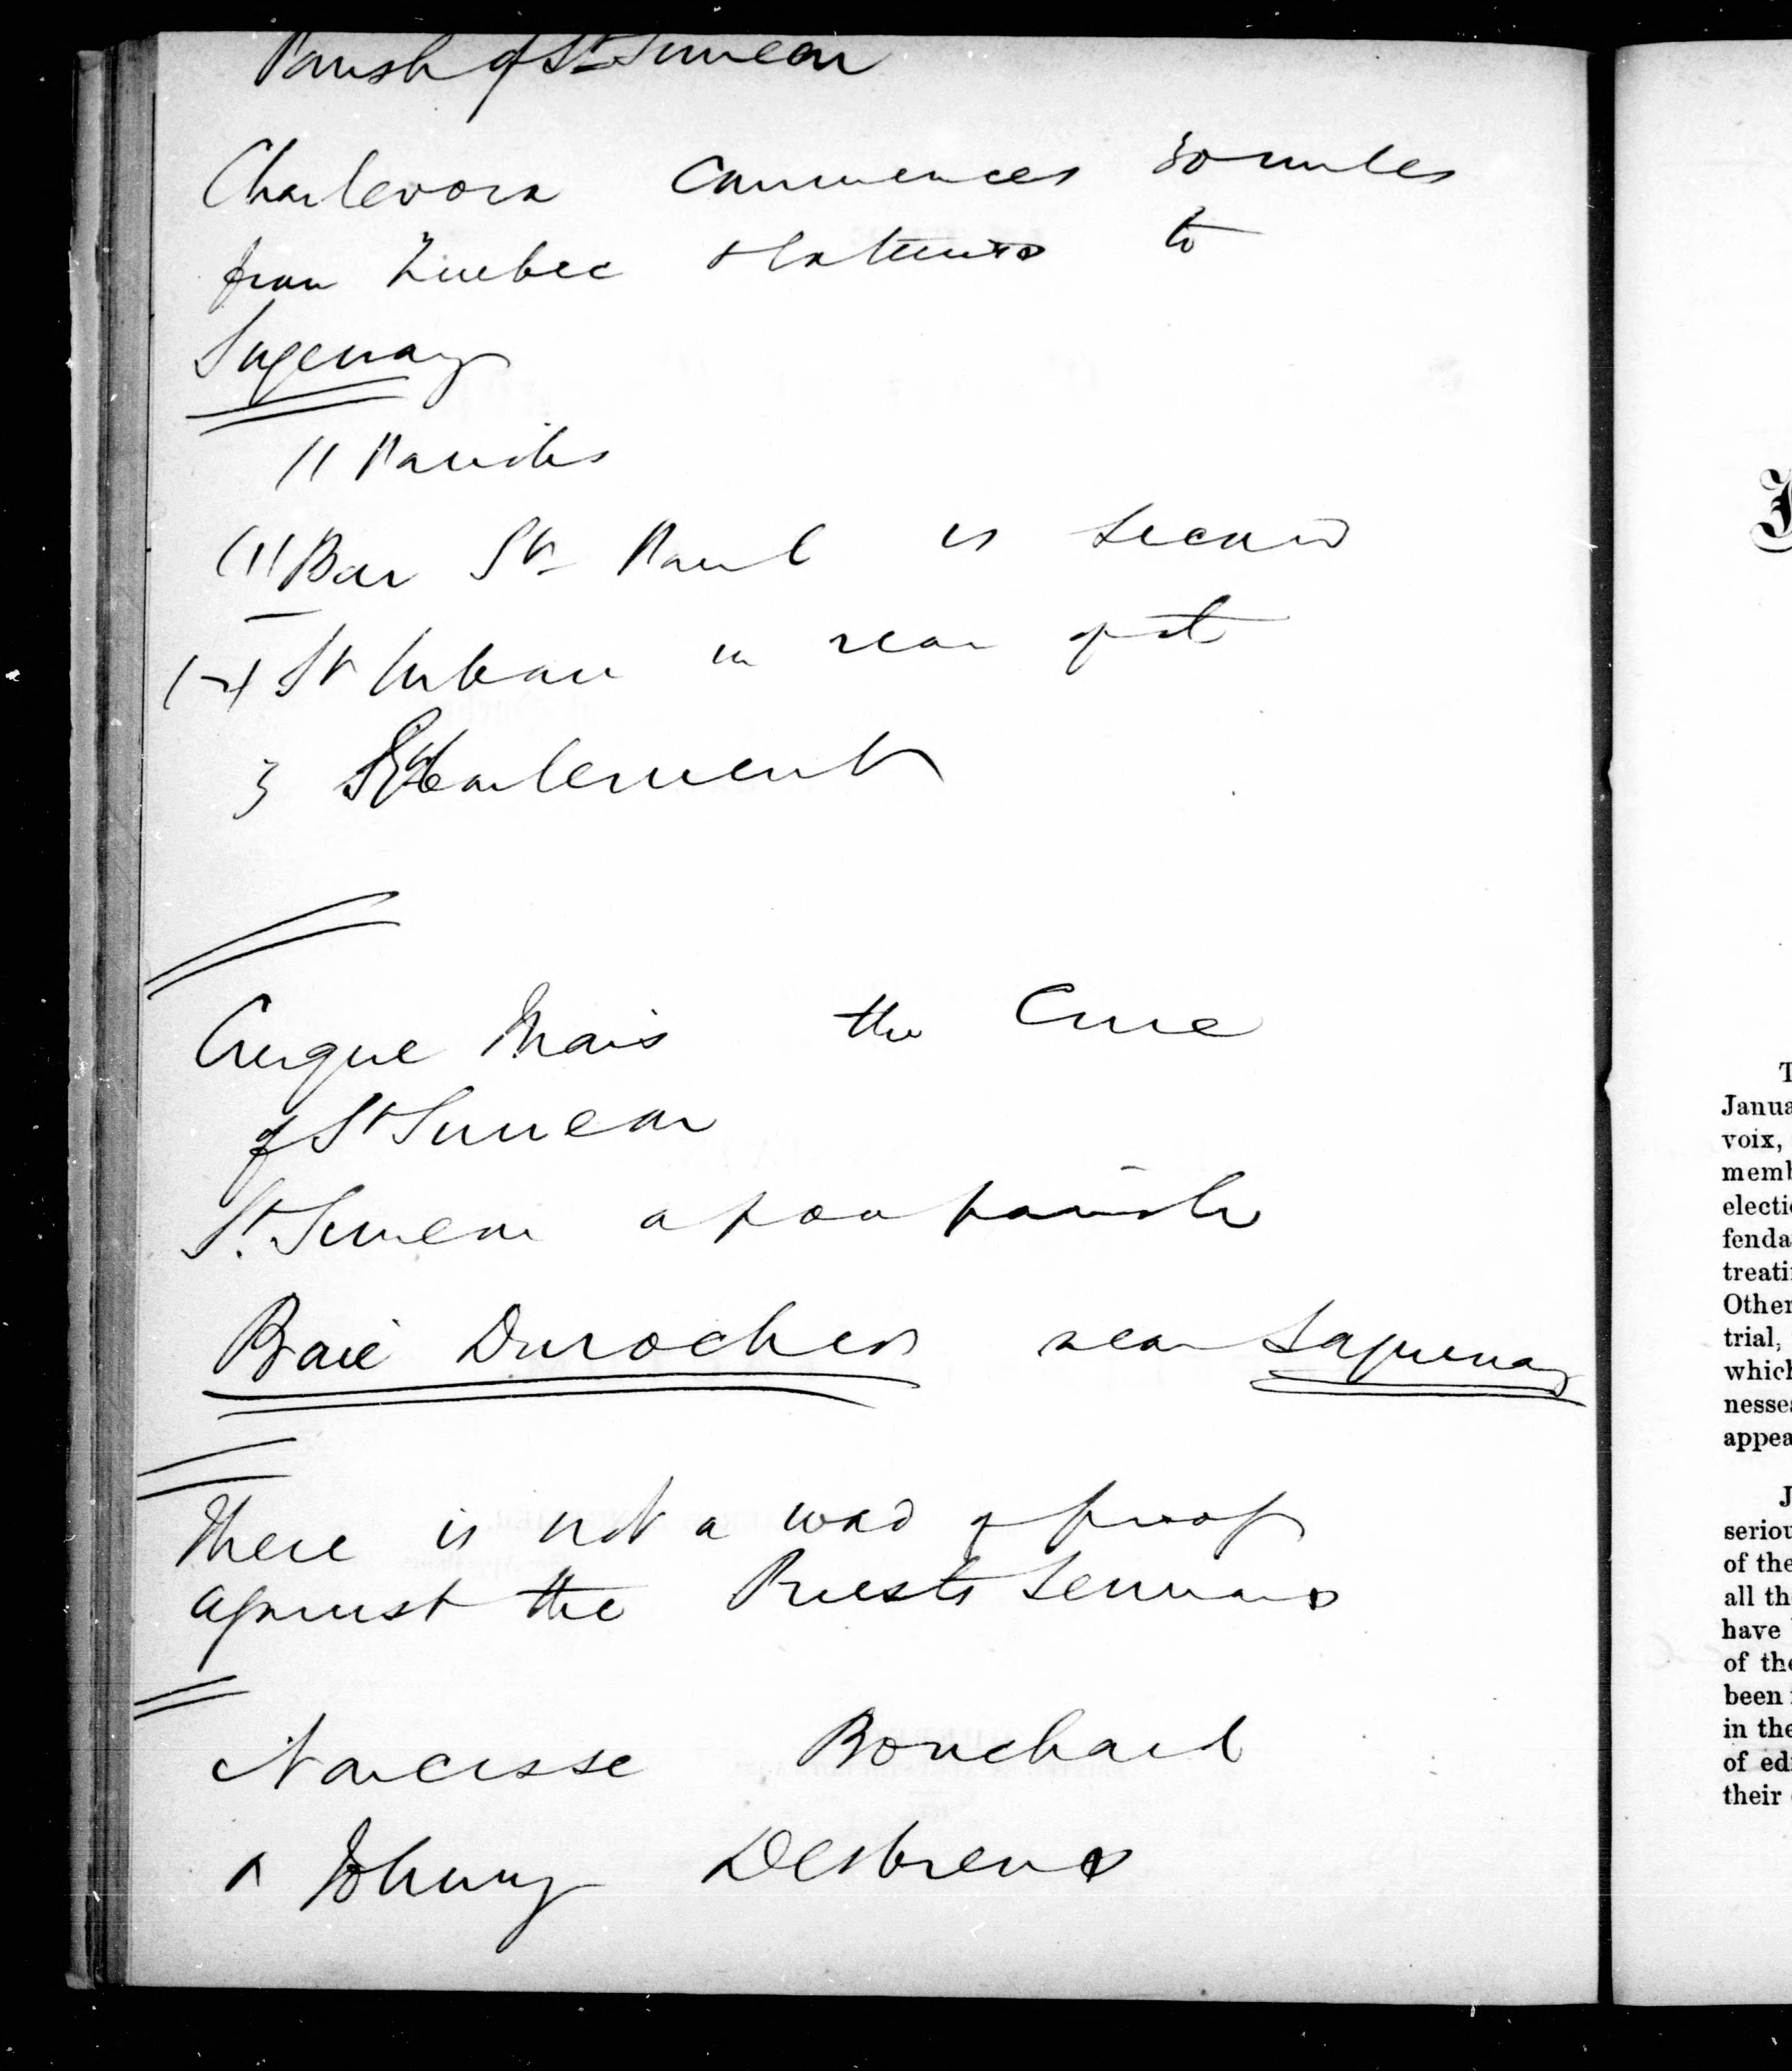 Parish of St Simeon
Charlevoix commences 30 miles
from Quebec & extends to
Sagenay
11 Parishes
(1) Bay St Paul is second
(2) St Urban in rear of it
3 Eboulements
Cinque Mars the Cure
of St Simeon
St. Simeon a poor parish
Baie Durochers near Saguenay
There is not a word of proof
against the Priests Sermons
Narcisse Bouchard
& Johnny Desbiens
T
Janua
voix,
memb
electi
fenda
treati
Other
trial,
which
nesses
appea
J
seriou
of the
all th
have
of the
been
in the
of ed
their